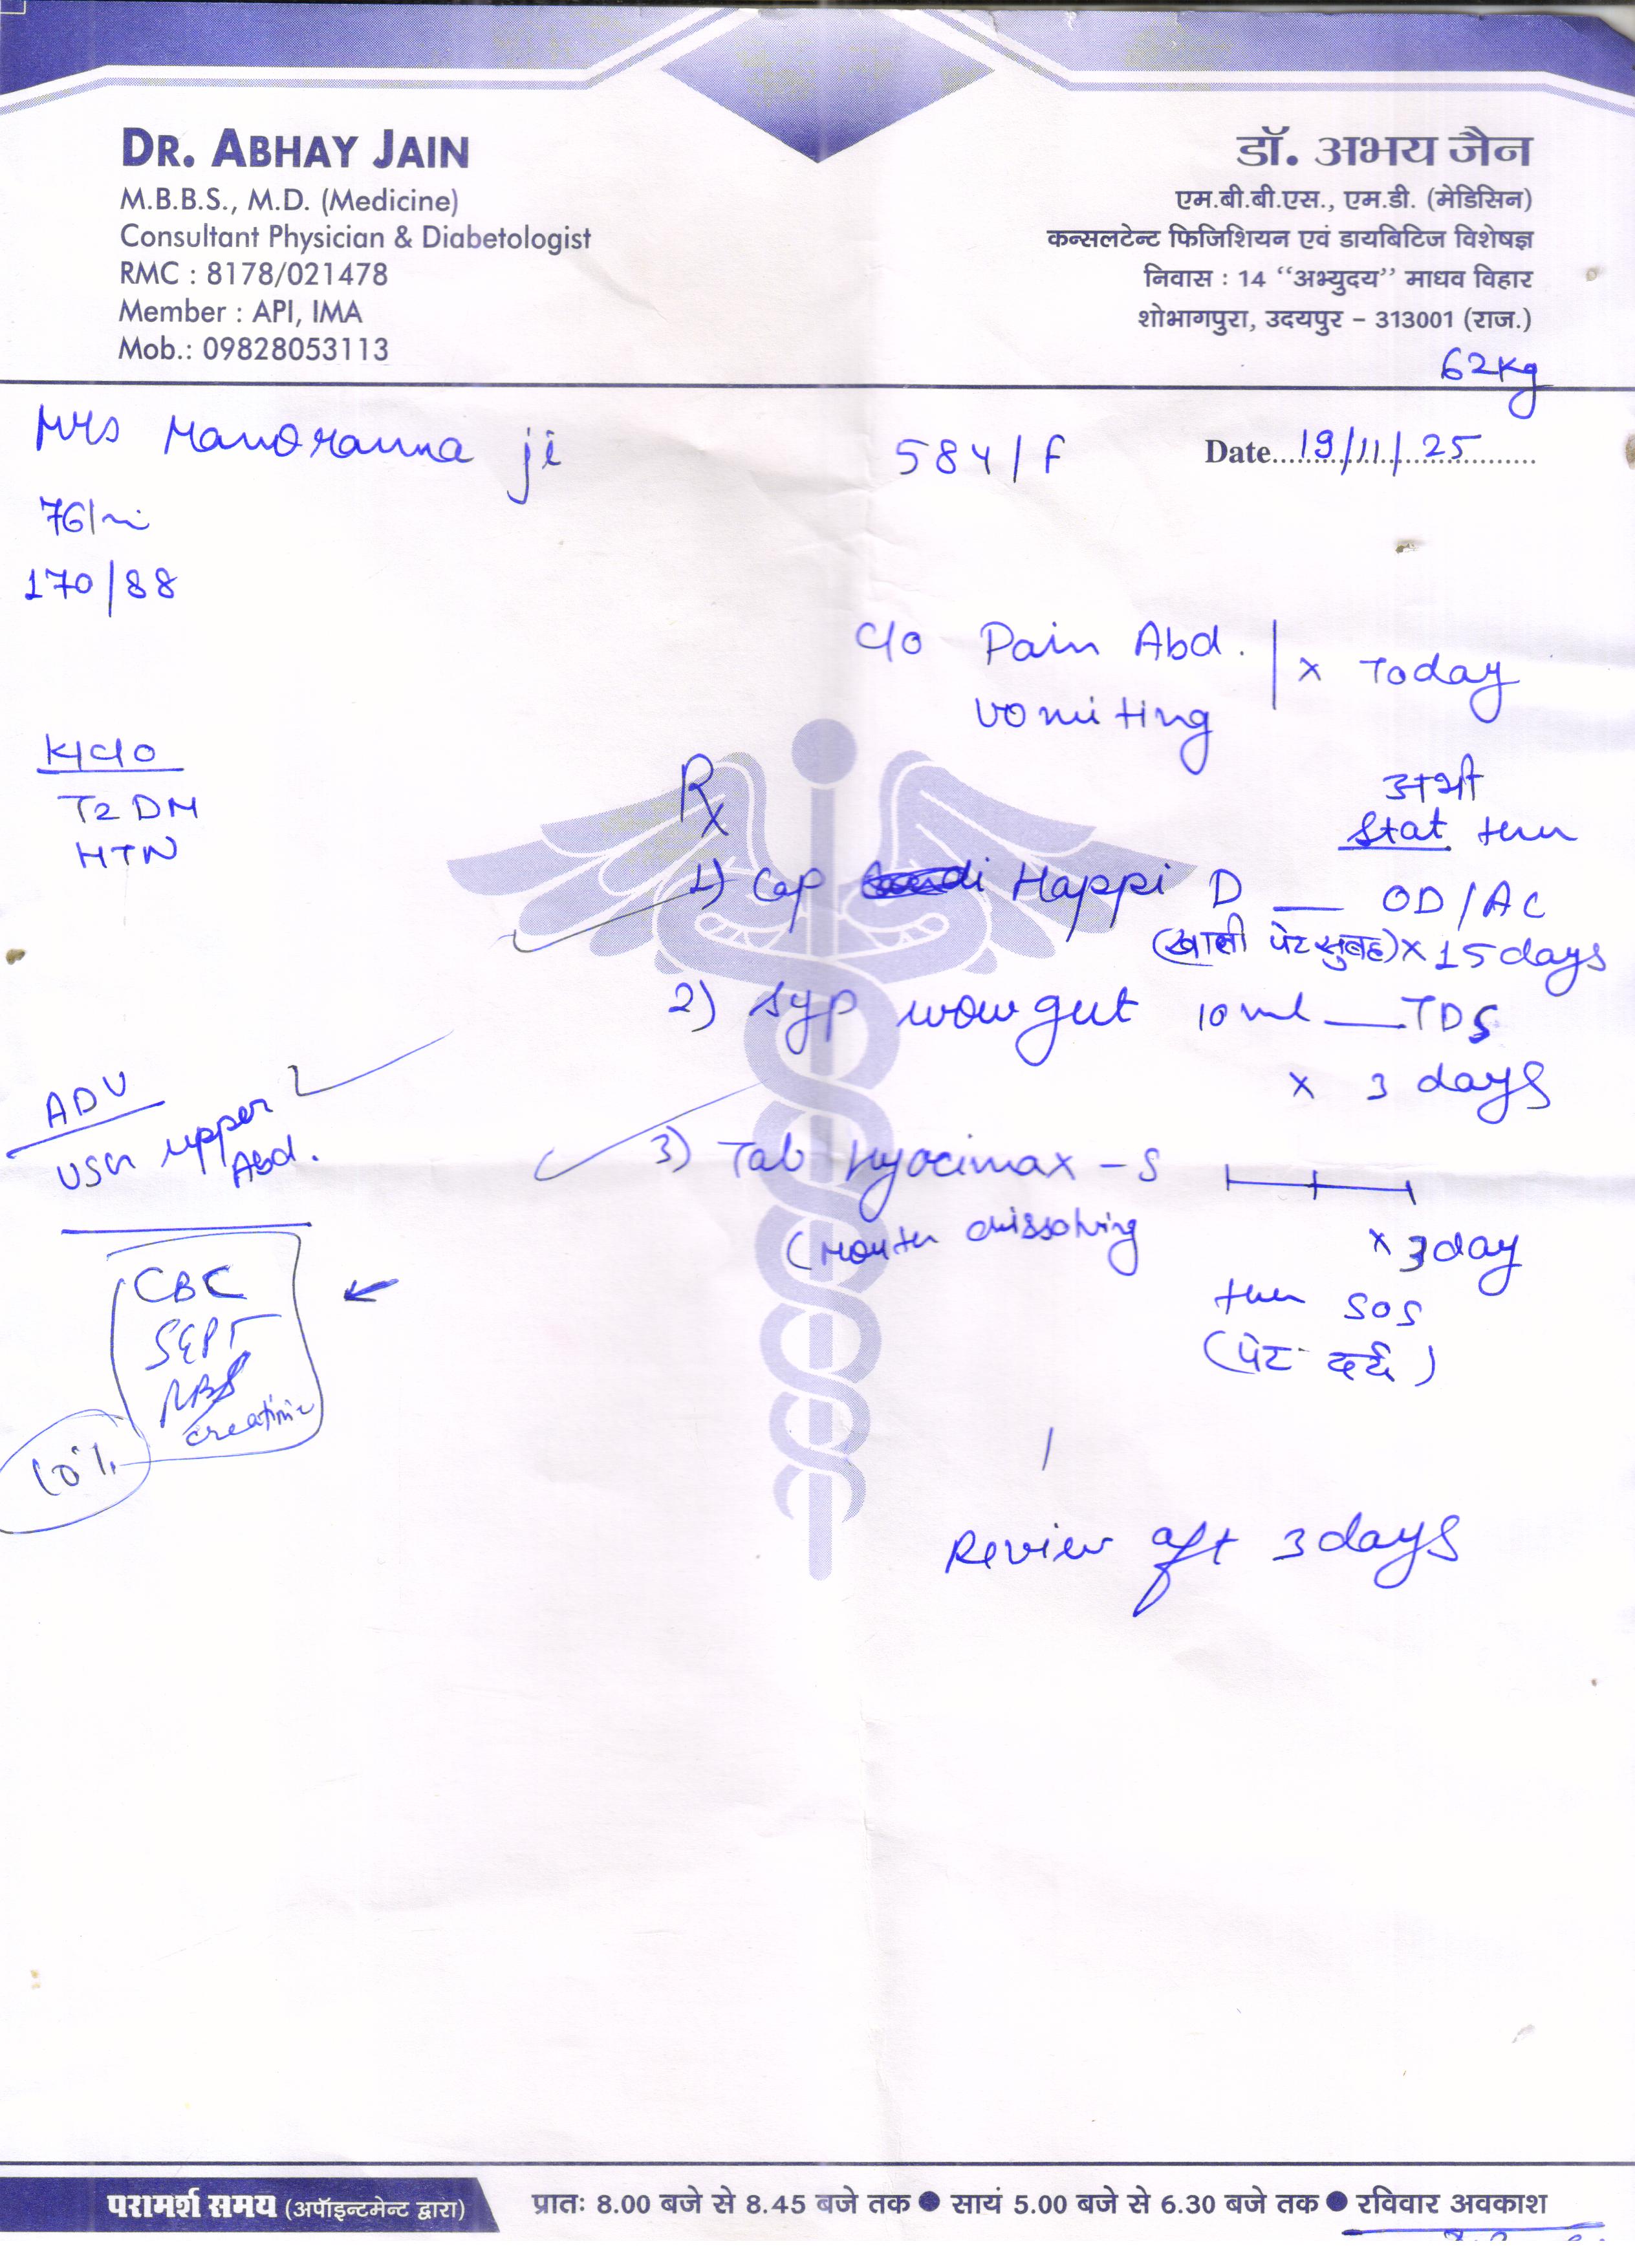 DR. ABHAY JAIN
M.B.B.S., M.D. (Medicine)
Consultant Physician & Diabetologist
RMC : 8178/021478
Member : API, IMA
Mob.: 09828053113
डॉ. अभय जैन
एम.बी.बी.एस., एम.डी. (मेडिसिन)
कन्सलटेन्ट फिजिशियन एवं डायबिटिज विशेषज्ञ
निवास : 14 “अभ्युदय” माधव विहार
शोभागपुरा, उदयपुर – 313001 (राज.)
62kg
Mrs Manoramma ji 584/F Date 19/11/25
76/mi
170/88
C/o Pain Abd. | x Today
vomiting
K/C/O
T2 DM
HTN
Rx
अभी
Stat then
1) Cap Happi D — OD/AC
(खाली पेट सुबह) x 15 days
2) Syp wow gut 10 ml — TDS
x 3 days
ADV
USG upper
Abd.
3) Tab Hyocimax - S
(Mouth dissolving
x 3 day
then SOS
(पेट दर्द)
CBC
RBS
creatinine
10%
Review aft 3 days
परामर्श समय (अपॉइन्टमेन्ट द्वारा) प्रातः 8.00 बजे से 8.45 बजे तक ● सायं 5.00 बजे से 6.30 बजे तक ● रविवार अवकाश